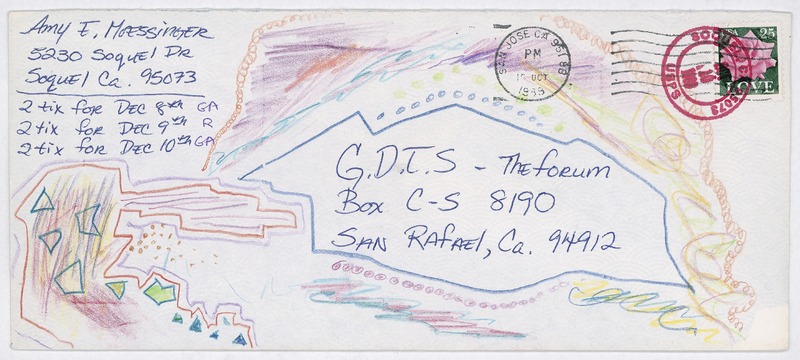 Amy E. Moessinger
5230 Soquel Dr
Soquel Ca. 95073
2 tix for Dec 8th GA
2 tix for Dec 9th R
2 tix for Dec 10th GA
SAN JOSE CA 951
PM
OCT
USA 25
LOVE
SOQUEL
95073
G.D.T.S - The forum
Box C-S 8190
San Rafael, Ca. 94912